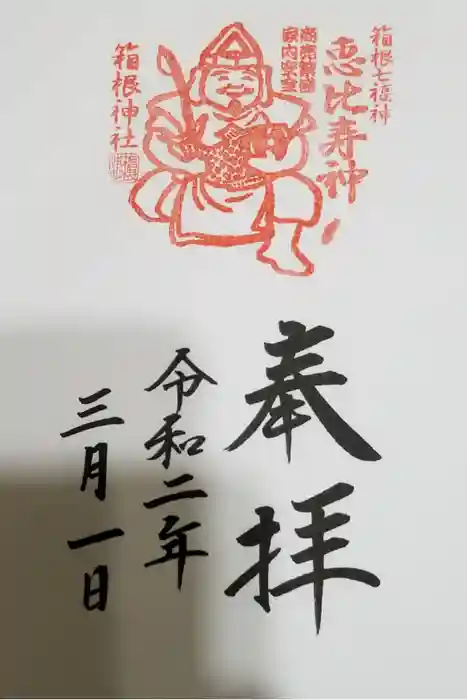 箱根七福神
恵比寿神
商売繁盛
家内安全
箱根神社
奉拝
令和二年
三月一日